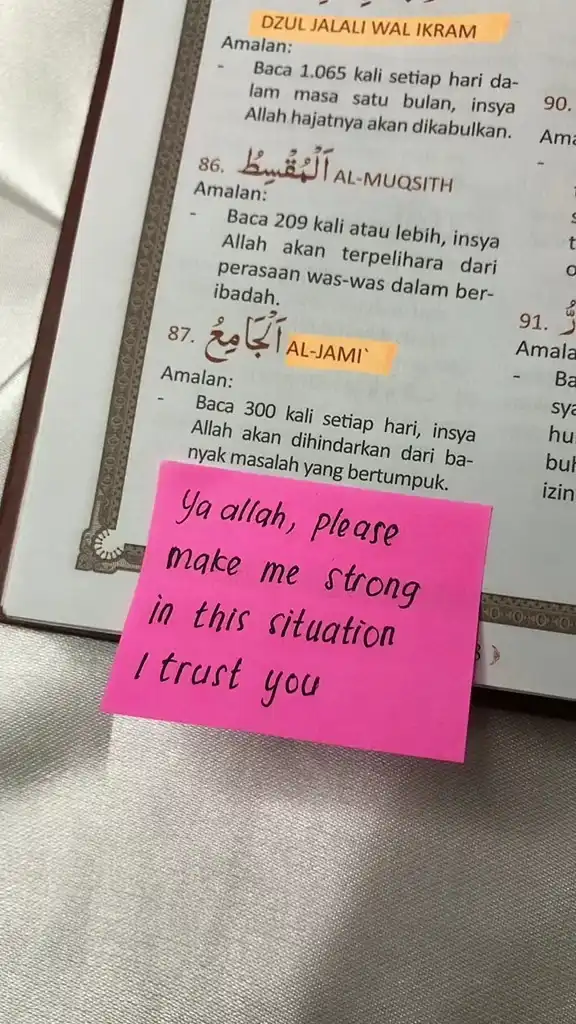 DZUL JALALI WAL IKRAM
Amalan:
- Baca 1.065 kali setiap hari da-
lam masa satu bulan, insya
Allah hajatnya akan dikabulkan.
86. اَلْمُقْسِطُ AL-MUQSITH
Amalan:
- Baca 209 kali atau lebih, insya
Allah akan terpelihara dari
perasaan was-was dalam ber-
ibadah.
87. اَلْجَامِعُ AL-JAMI`
Amalan:
- Baca 300 kali setiap hari, insya
Allah akan dihindarkan dari ba-
nyak masalah yang bertumpuk.
90.
-
91.
Amala
- Ba
Ya allah, please
make me strong
in this situation
I trust you